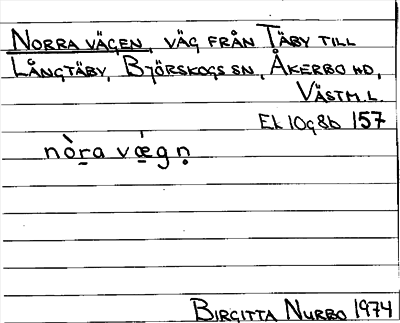 NORRA VÄGEN, VÄG FRÅN TÄBY TILL
LÅNGTÄBY, BJÖRSKOGS SN, ÅKERBO HD,
VÄSTM.L.
Ek 10g8b 157
nò̱ra vǽ̱gṇ
BIRGITTA NURBO 1974